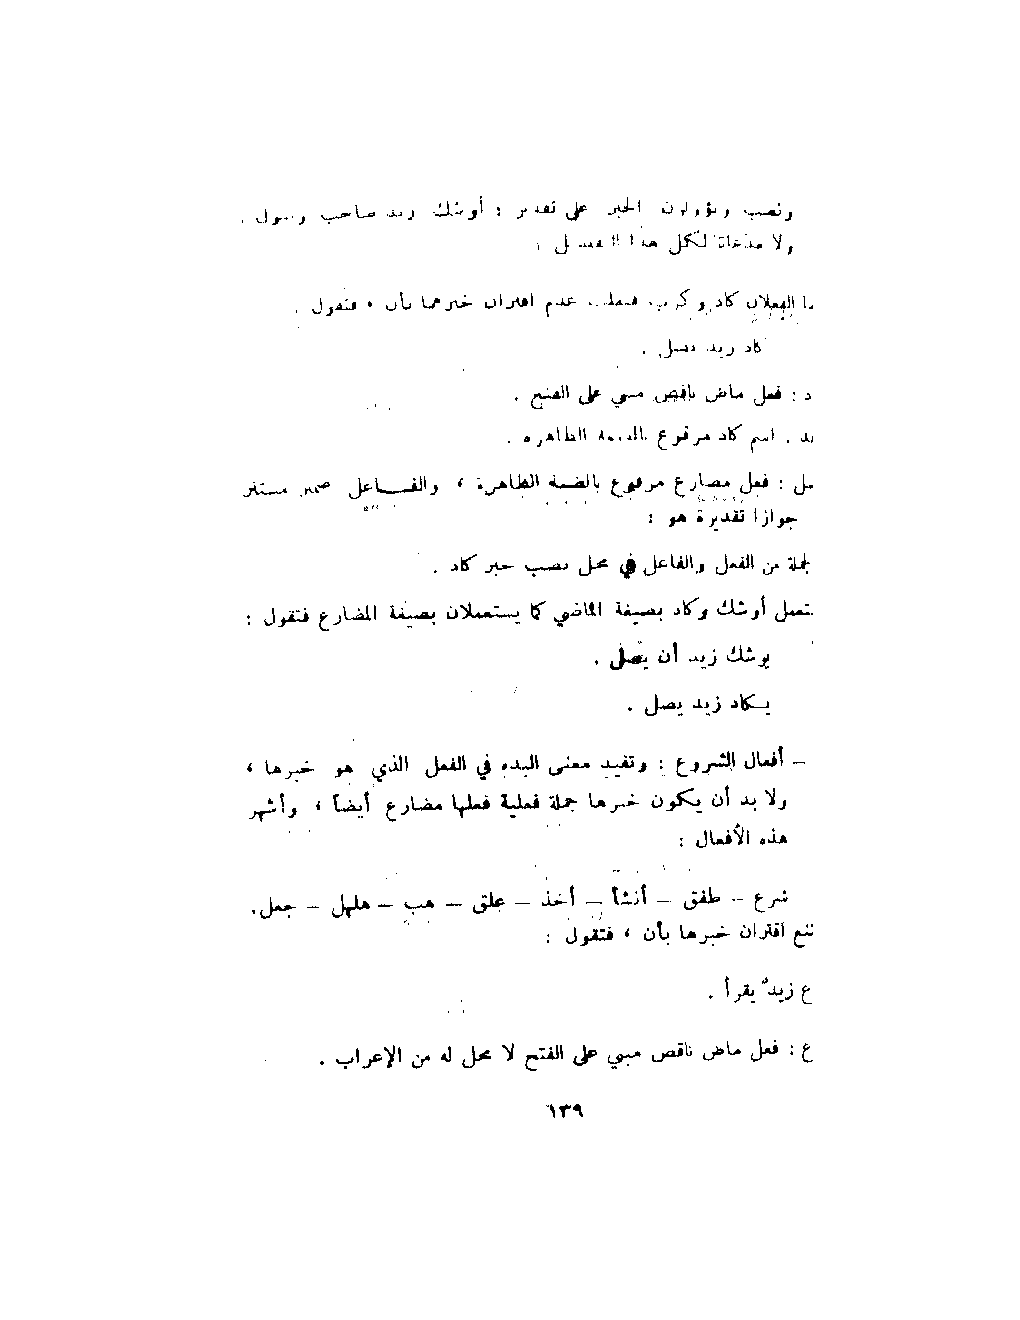 ونصب ويؤولون الخبر على تقدير : أوشك زيد صاحب وصول .
ولا مدعاة لكل هذا التفصيل :
ما الفعلان كاد وكرب عدم اقتران خبرهما بأن ، فتقول .
كاد زيد يصل .
د : فعل ماض ناقص مبني على الفتح .
يد . اسم كاد مرفوع بالضمة الظاهرة .
صل : فعل مضارع مرفوع بالضمة الظاهرة ، والفـاعل ضمير مستتر
جوازا تقديرة هو :
لجملة من الفعل والفاعل في محل نصب خبر كاد .
ستعمل أوشك وكاد بصيغة الماضي كما يستعملان بصيغة المضارع فتقول :
يوشك زيد أن يصل .
يكاد زيد يصل .
– أفعال الشروع : وتفيد معنى البدء في الفعل الذي هو خبرها ،
ولا بد أن يكون خبرها جملة فعلية فعلها مضارع أيضاً ، وأشهر
هذه الأفعال :
شرع – طفق – أنشأ – أخذ – علق – هب – هلهل – جعل.
تنع اقتران خبرها بأن ، فتقول :
ع زيدٌ يقرأ .
ع : فعل ماض ناقص مبني على الفتح لا محل له من الإعراب .
١٣٩